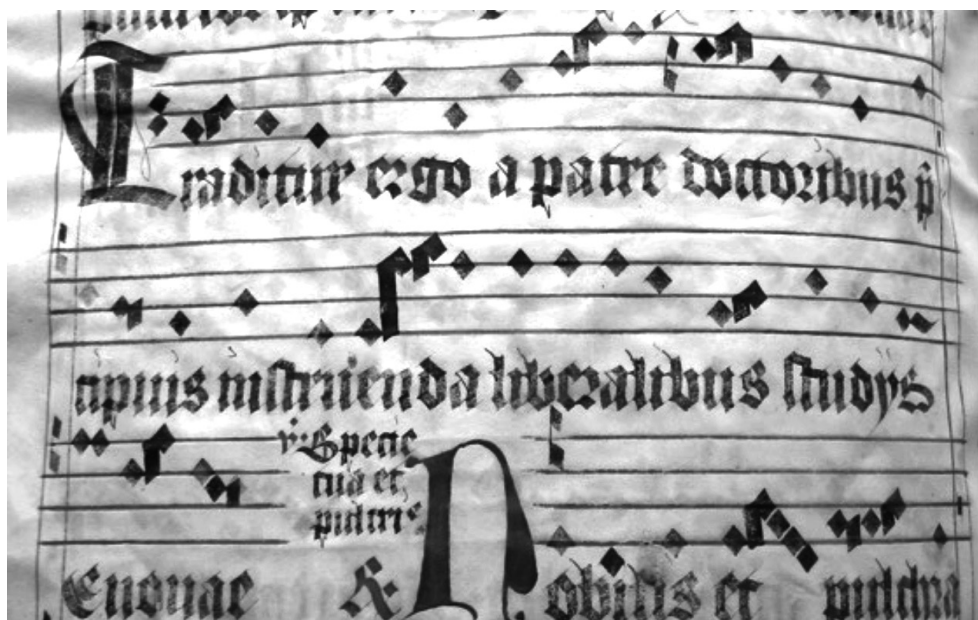 Traditur ergo a patre doctoribus p̄
cipuis instruenda liberalibus studys
v̄. Specie
tua et
pulcri
Euouae & Nobilis et pulchra